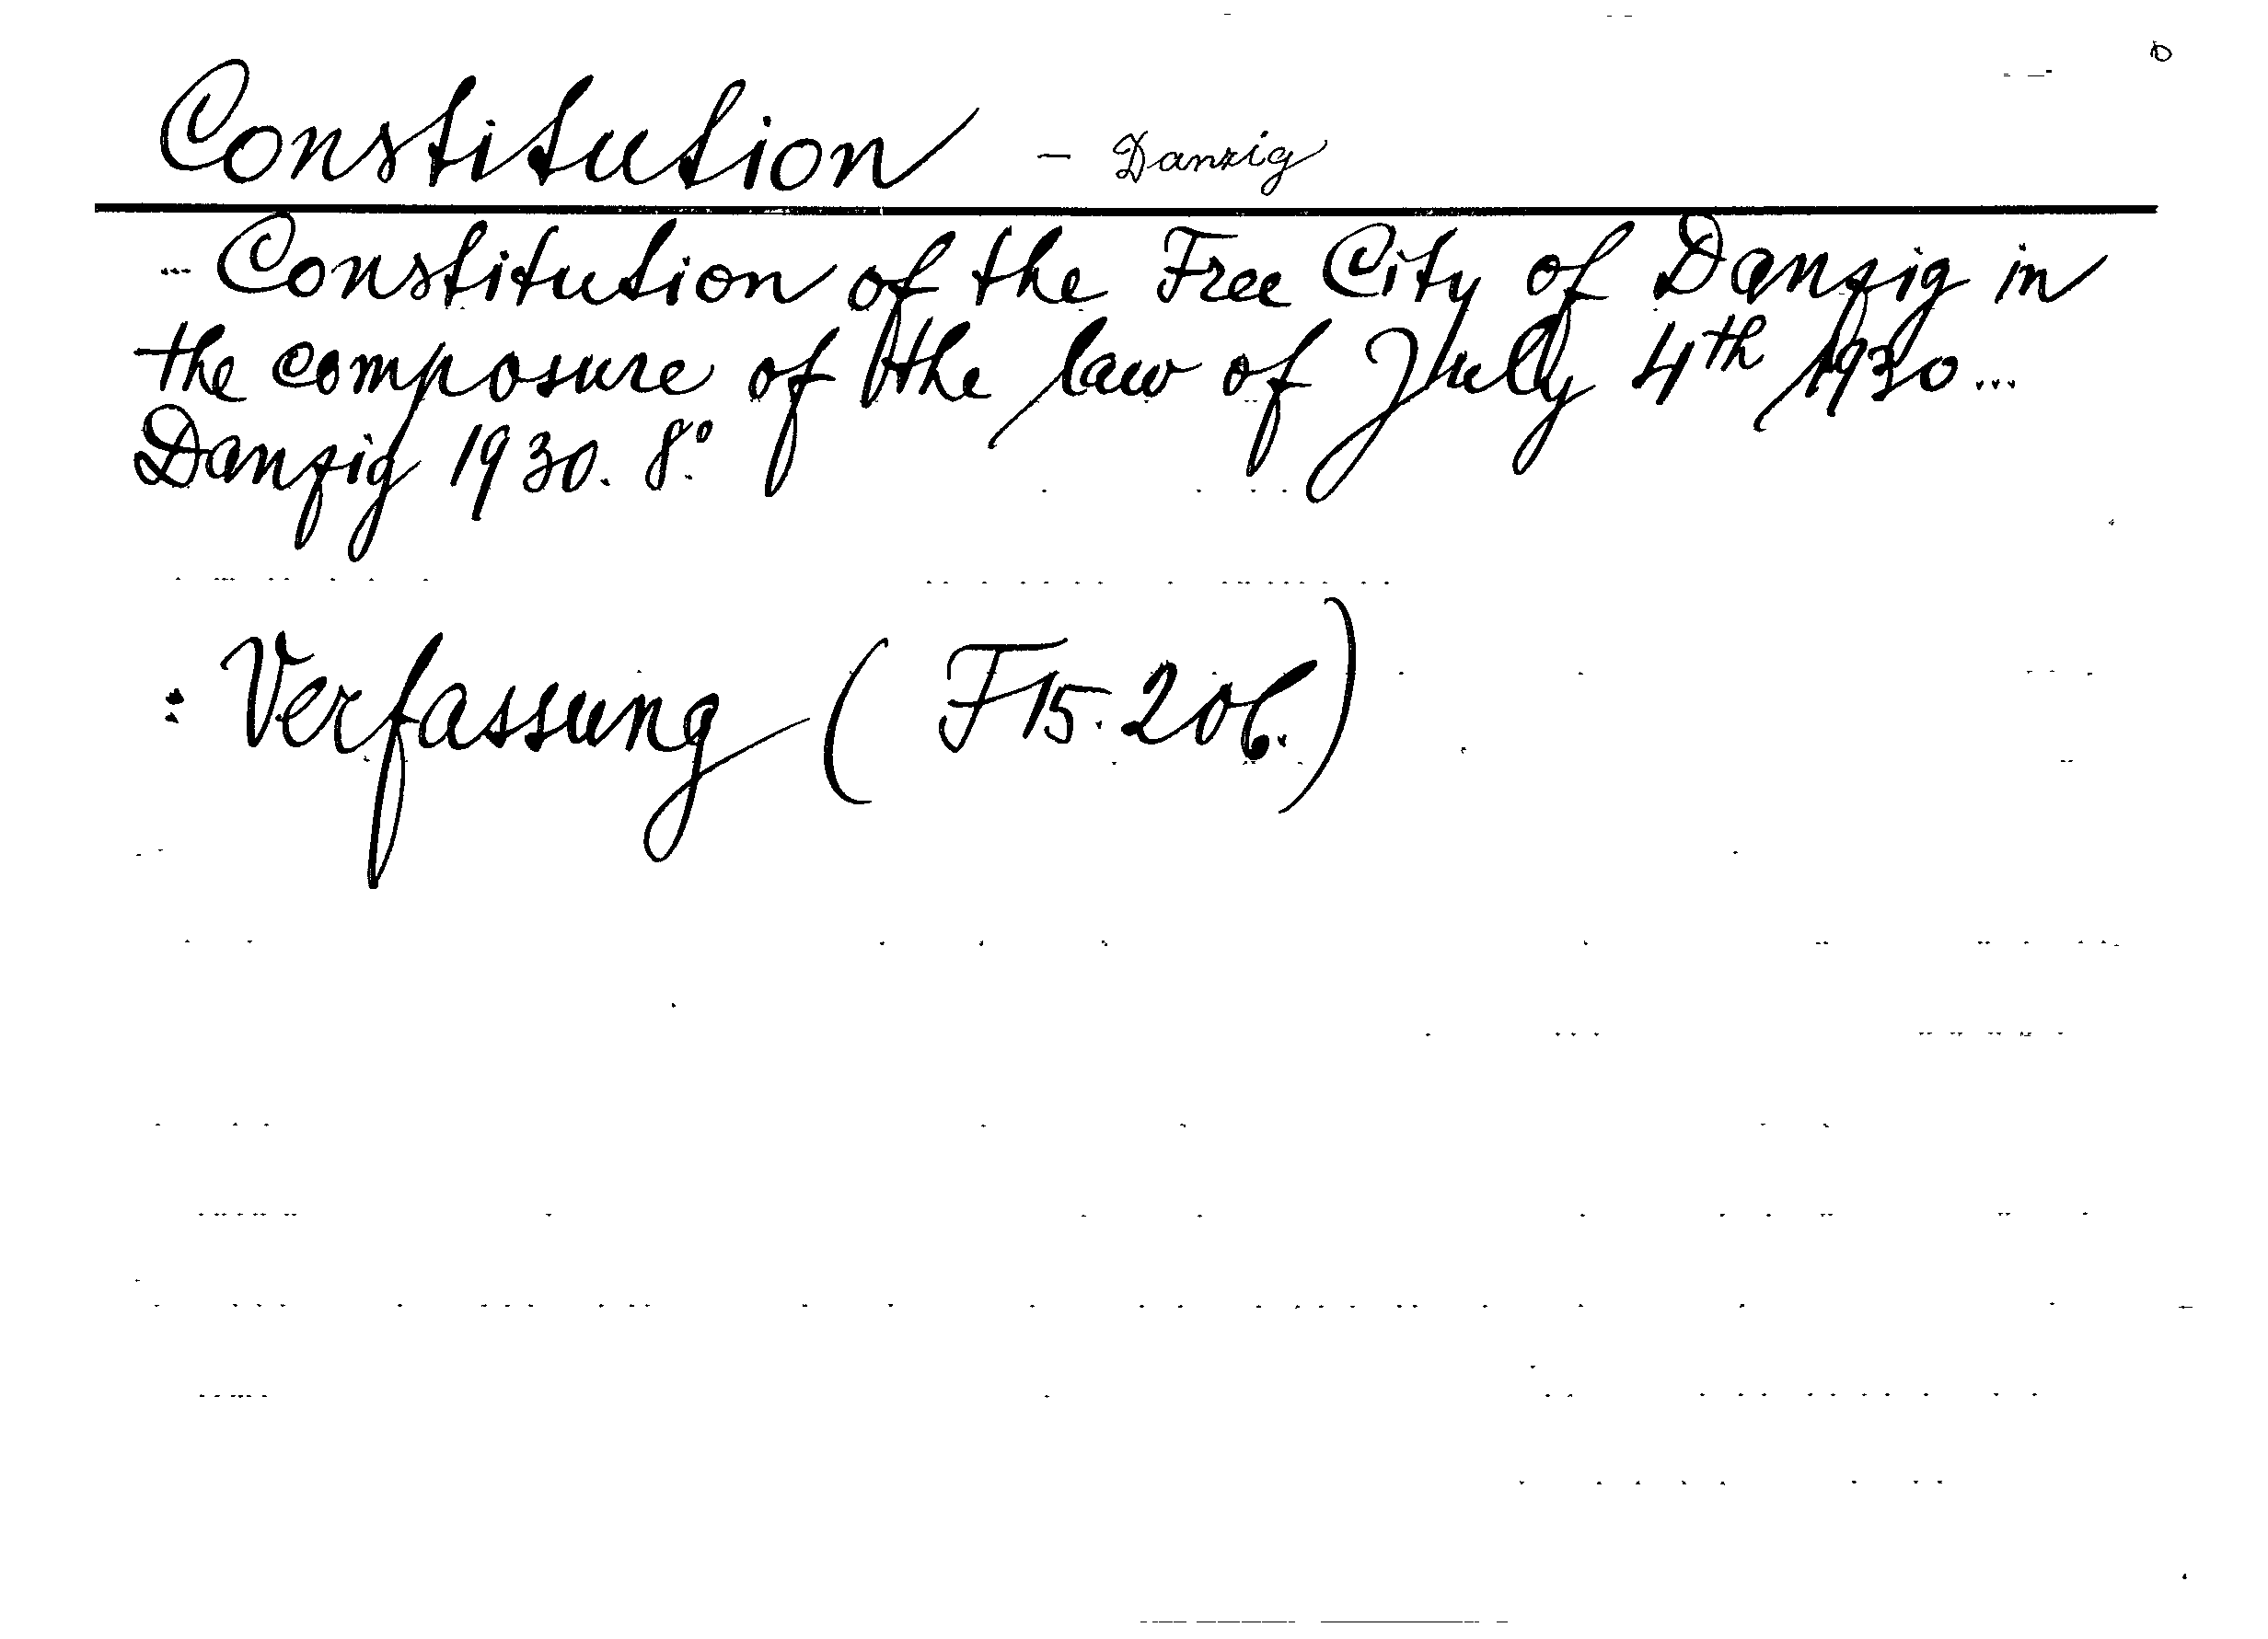 Constitution - Danzig
... Constitution of the Free City of Danzig in
the composure of the law of July 4th 1930...
Danzig 1930. 8.°
: Verfassung ( F 15. 206.)